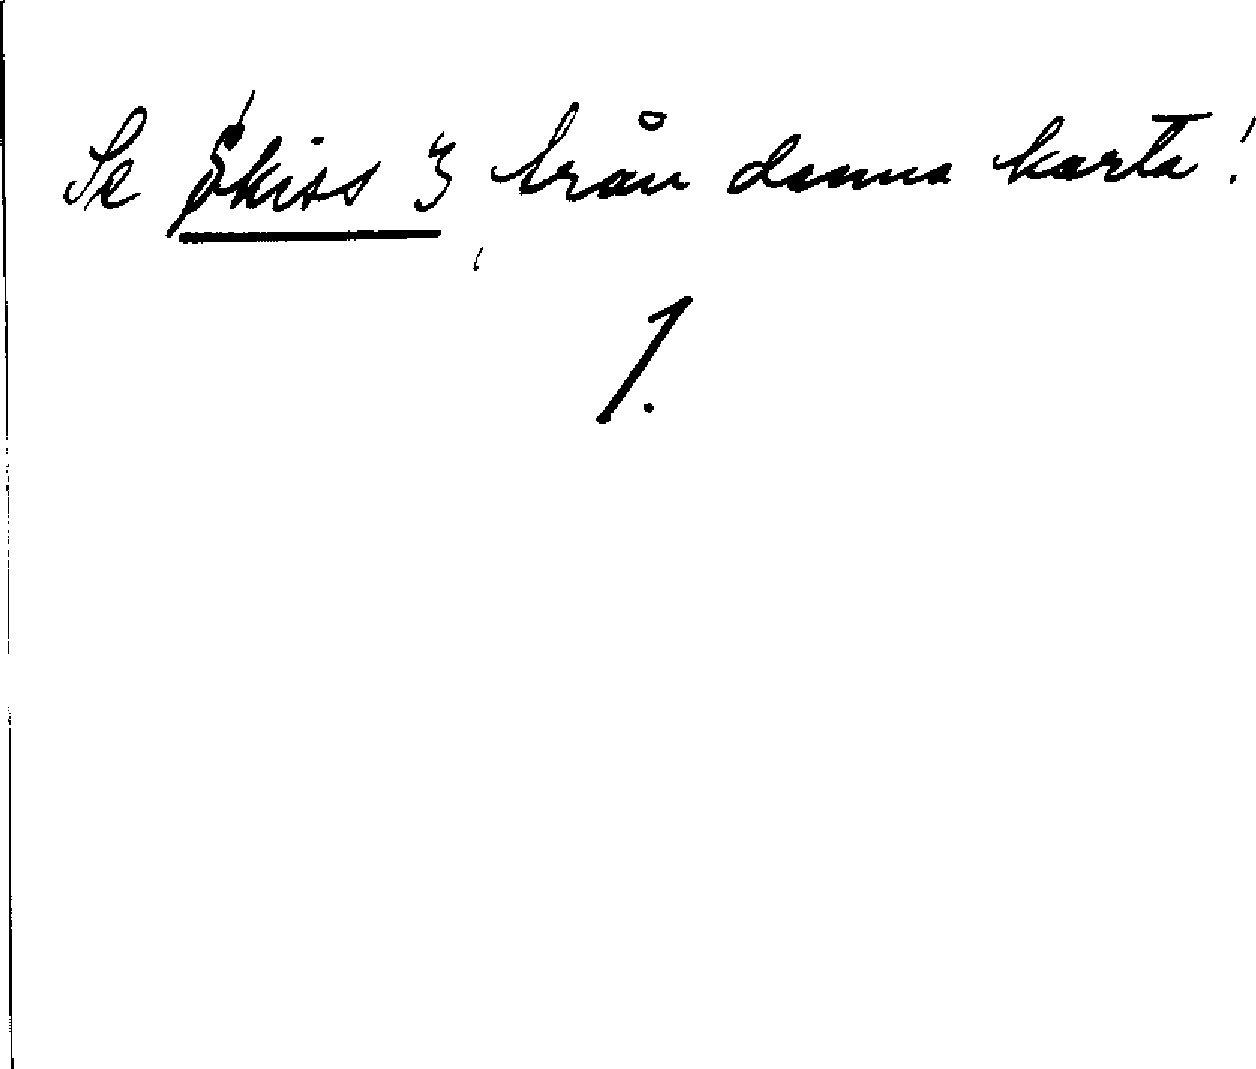 Se Skiss 3, från denna karta!
1.